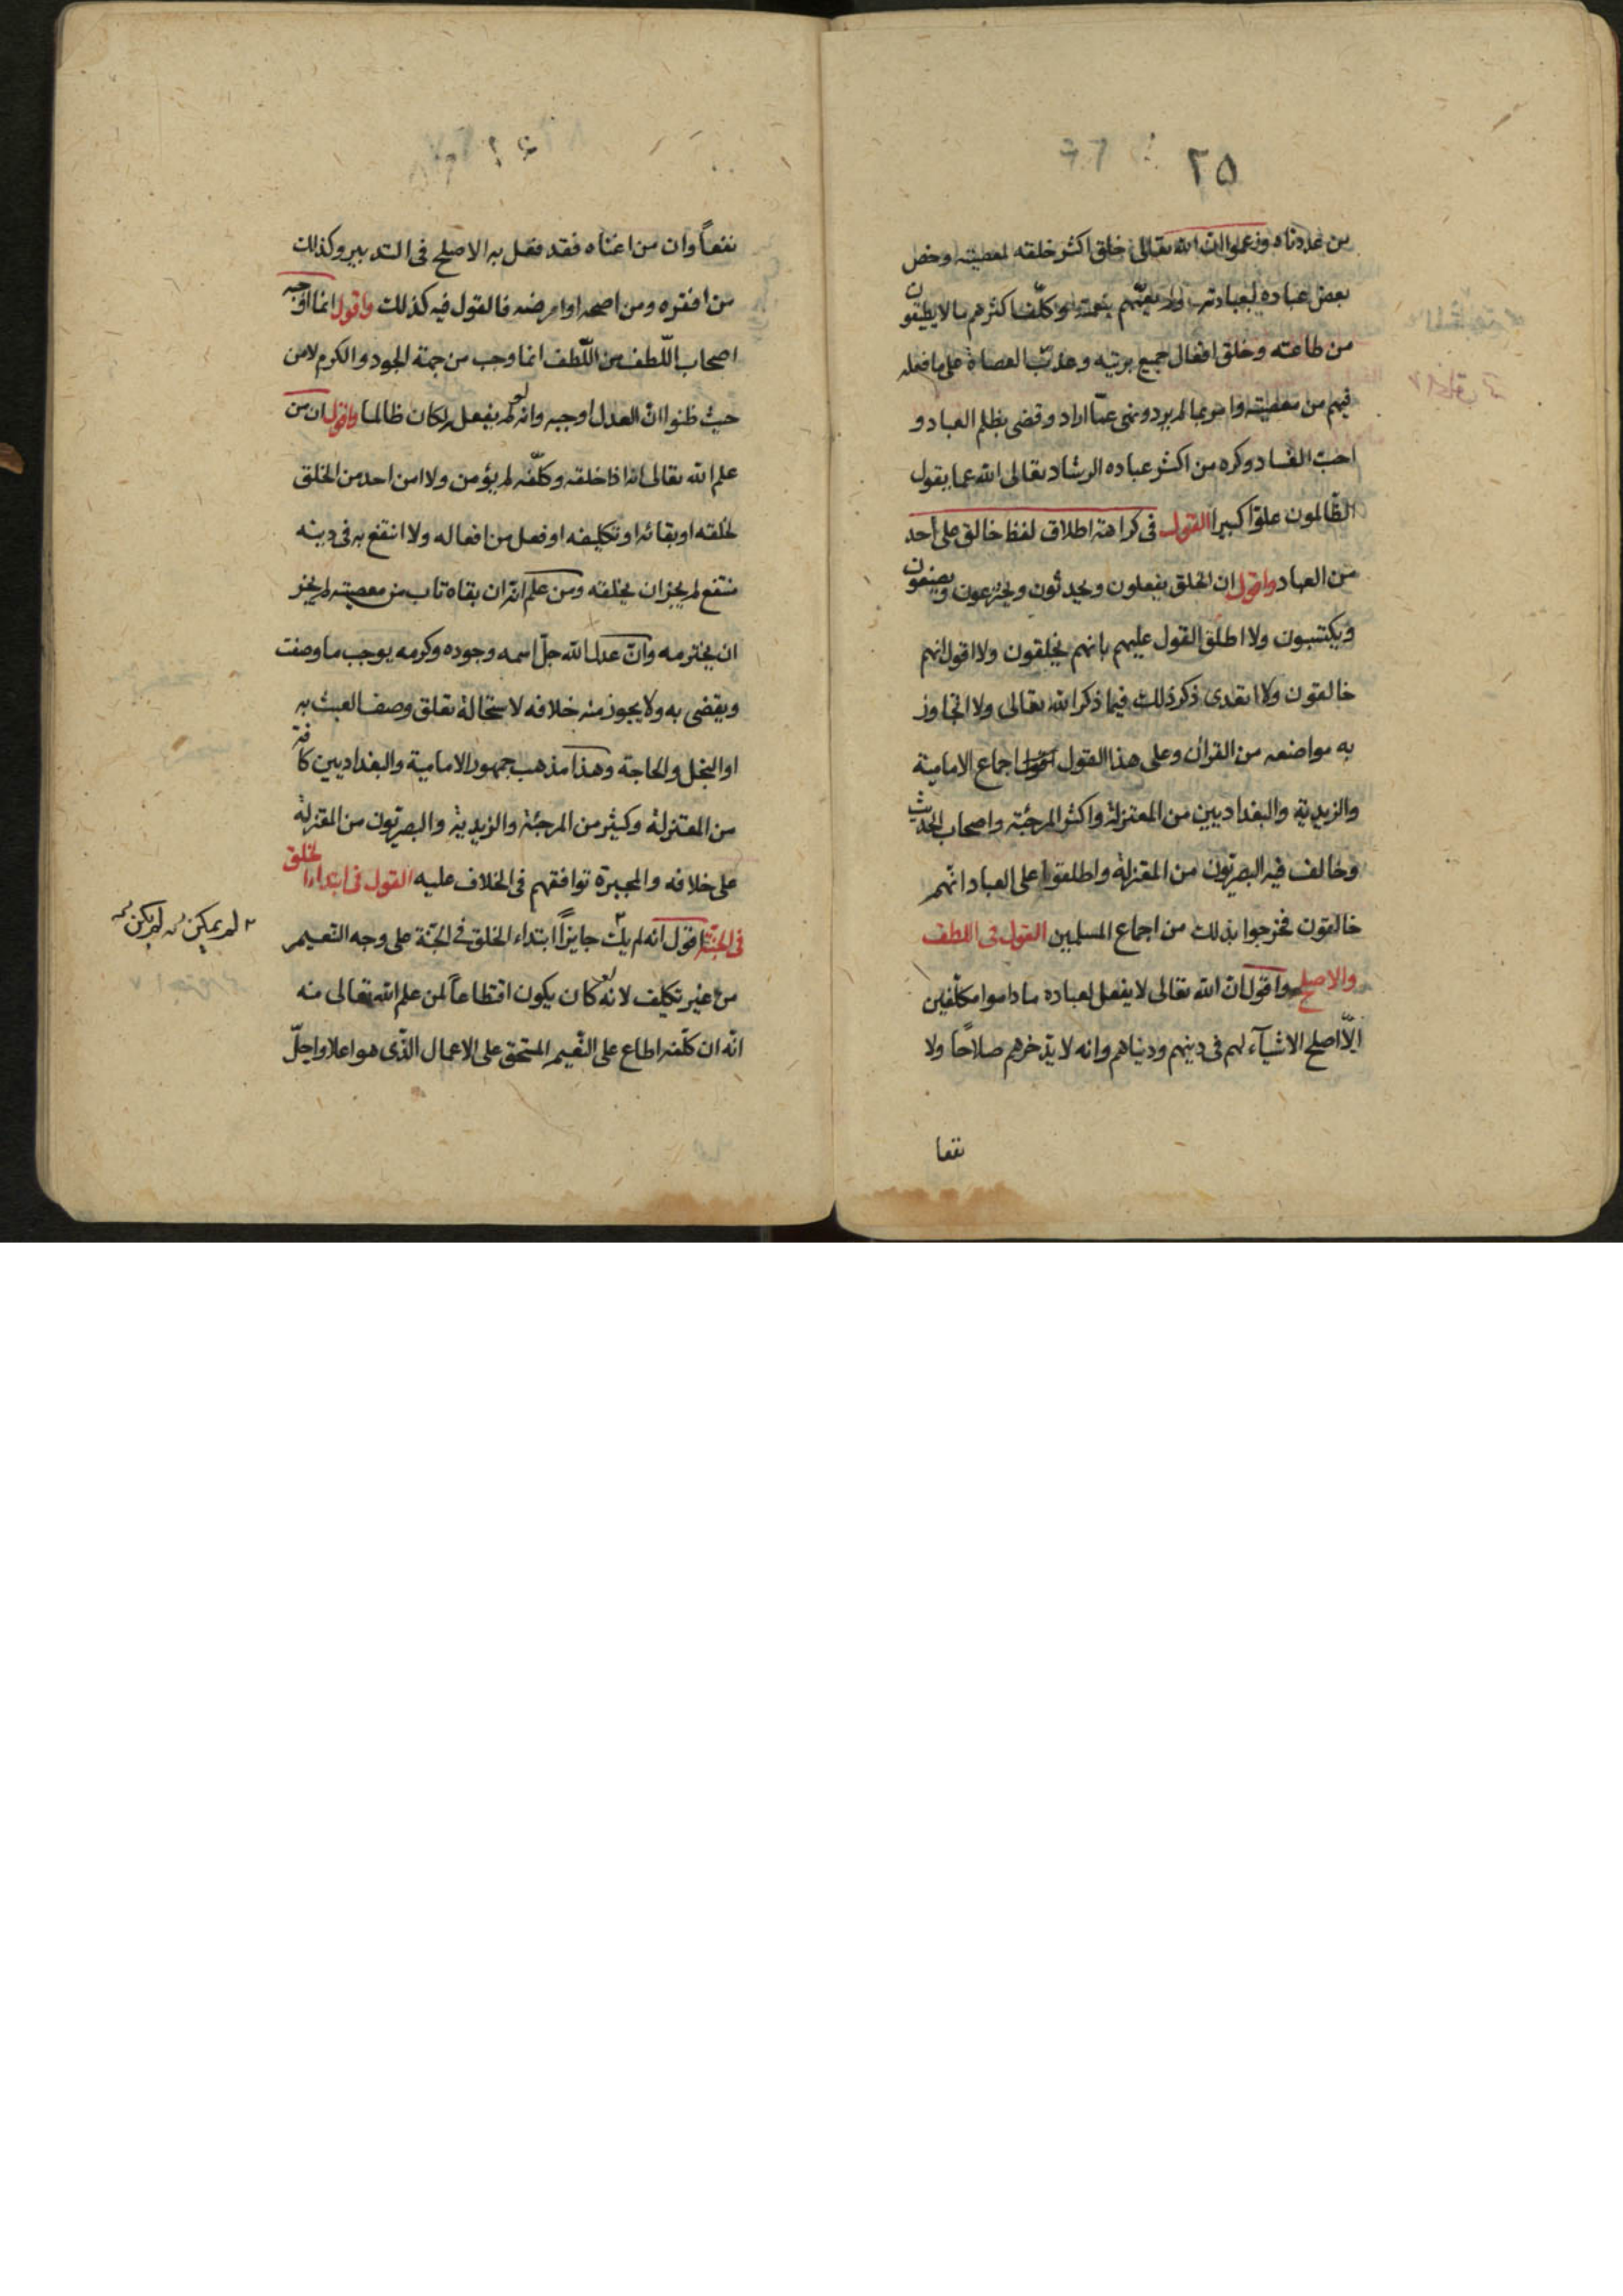 ٢٥
من عددناه وزعموا ان الله تعالى خلق اكثر خلقه لمعصيته وخص
بعض عباده لعبادته ولم يعمهم بنعمته وكلف اكثرهم ما لا يطيقون
من طاعته وخلق افعال جميع بريته وعذب العصاة على ما فعله
فيهم من معصيته وامر بما لم يرد ونهى عما اراد وقضى بظلم العباد و
احب الفساد وكره من اكثر عباده الرشاد تعالى الله عما يقول
الظالمون علوّا كبيرا القول فى كراهة اطلاق لفظ خالق على احد
من العباد واقول ان الخلق يفعلون ويحدثون ويخترعون ويصنعون
ويكتسبون ولا اطلق القول عليهم بانهم يخلقون ولا اقول انهم
خالقون ولا اتعدى ذكر ذلك فيما ذكر الله تعالى ولا اتجاوز
به مواضعه من القران وعلى هذا القول اجماع الامامية
والزيدية والبغداديين من المعتزلة واكثر المرجئة واصحاب الحديث
وخالف فيه البصريون من المعتزلة واطلقوا على العباد انهم
خالقون فخرجوا بذلك من اجماع المسلمين القول فى اللطف
والاصلح واقول ان الله تعالى لا يفعل لعباده ما داموا مكلفين
الّا اصلح الاشيآء لهم فى دينهم ودنياهم وانه لا يدّخرهم صلاحاً ولا
نفعا
نفعاً وان من اغناه فقد فعل به الاصلح فى التدبير وكذلك
من افقره ومن اصحه او امرضه فالقول فيه كذلك واقول انما اوجبه
اصحاب اللّطف من اللّطف انما وجب من جهة الجود والكرم لا من
حيث ظنوا ان العدل اوجبه وانه لو لم يفعل لكان ظالما واقول ان من
علم الله تعالى انه اذا خلقه وكلّفه لم يؤمن ولا امن احد من الخلق
لخلقه او بقائه او تكليفه او فعل من افعاله ولا انتفع به فى دينه
منتفع لم يجز ان يخلقه ومن علم انّه ان بقاه تاب من معصيته لم يجز
ان يخترمه وانّ عدل الله جلّ اسمه وجوده وكرمه يوجب ما وصفت
ويقضى به ولا يجوز منه خلافه لاستحالة تعلق وصف العبث به
او البخل والحاجة وهذا مذهب جمهور الامامية والبغداديين كافة
من المعتزلة وكثير من المرجئة والزيدية والبصريون من المعتزلة
على خلافه والمجبرة توافقهم فى الخلاف عليه القول فى ابتداء الخلق
فى الجنّة اقول انه لم يك جايزاً ابتداء الخلق فى الجنّة على وجه التنعيم
من غير تكليف لانه لو كان يكون اقتطاعاً لمن علم الله تعالى منه
انّه ان كلّفه اطاع على النّعيم المستحق على الاعمال الّذى هو اعلا واجلّ
٢ لم يمكن لم يكن